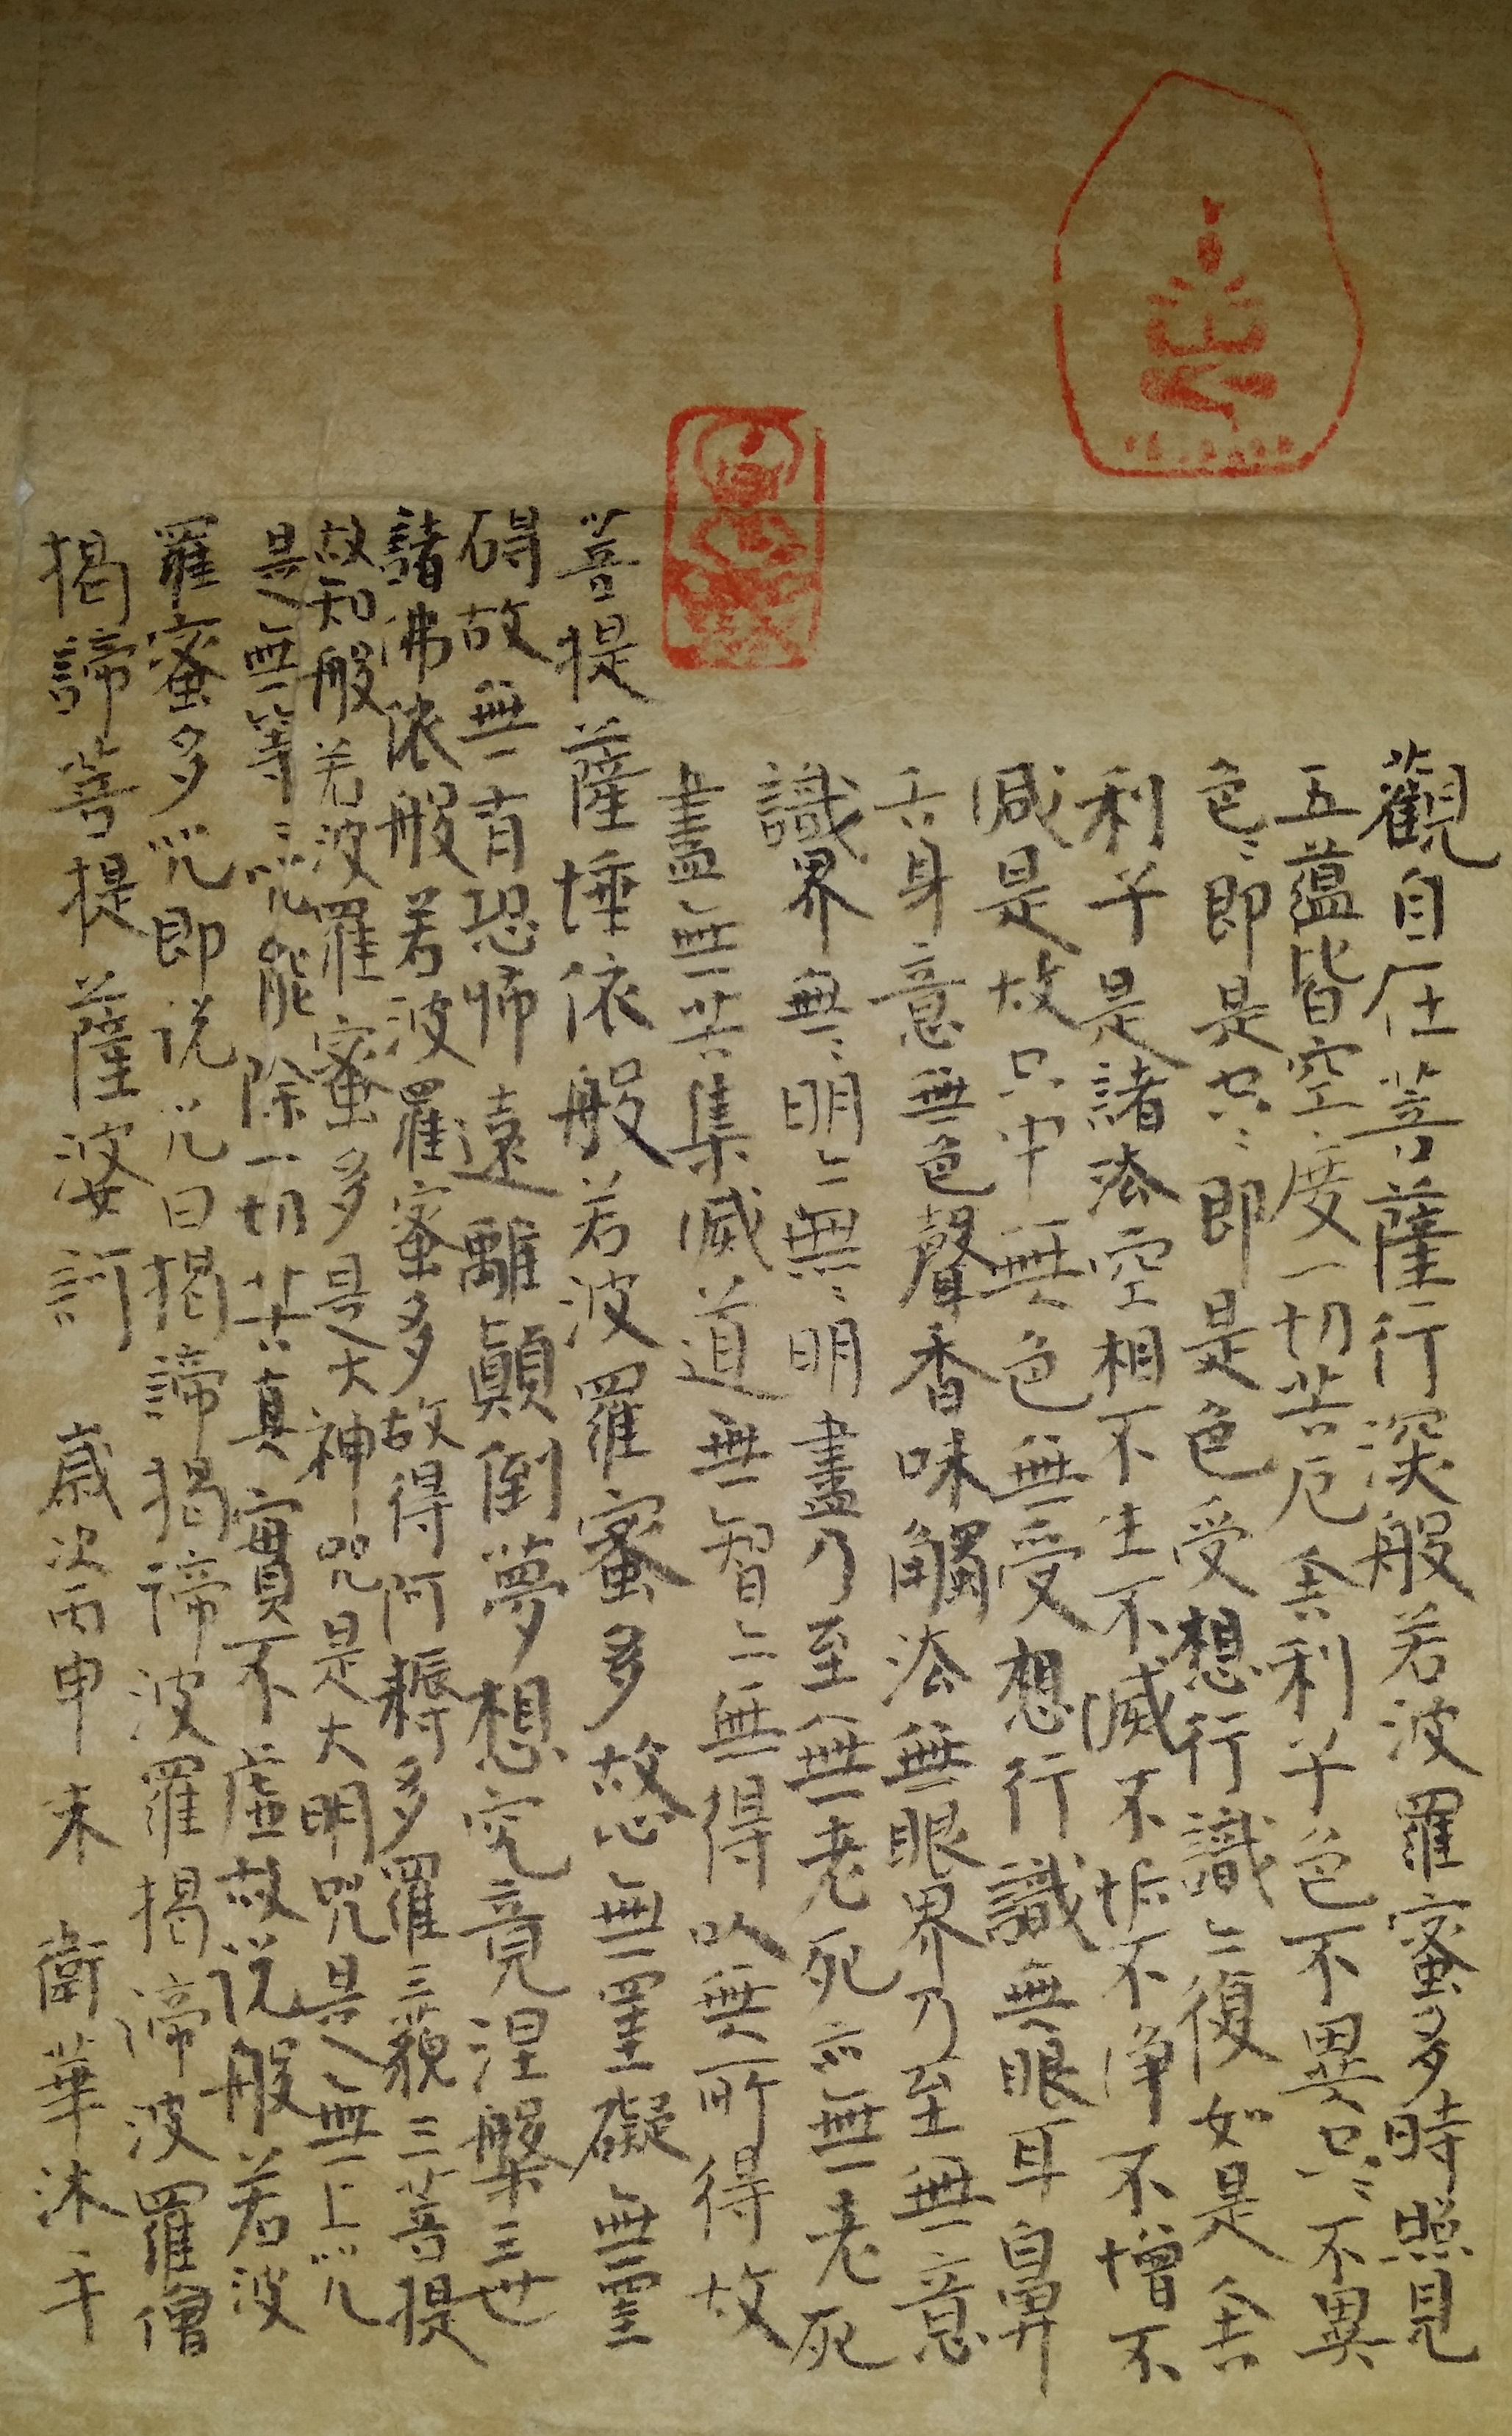 觀自在菩薩行深般若波羅蜜多時照見
五蘊皆空度一切苦厄舍利子色不異空〻不異
色〻即是空〻即是色受想行識亦復如是舍
利子是諸法空相不生不滅不垢不淨不增不
減是故空中無色無受想行識無眼耳鼻
舌身意無色聲香味觸法無眼界乃至無意
識界無〻明亦無〻明盡乃至無老死亦無老死
盡無苦集滅道無智亦無得以無所得故
菩提薩埵依般若波羅蜜多故心無罣礙無罣
碍故無有恐怖遠離顛倒夢想究竟涅槃三世
諸佛依般若波羅蜜多故得阿耨多羅三藐三菩提
故知般若波羅蜜多是大神咒是大明咒是無上咒
是無等〻咒能除一切苦真實不虛故说般若波
羅蜜多咒即说咒曰揭諦揭諦波羅揭諦波羅僧
揭諦菩提薩婆訶 歲次丙申末 衛華沐手